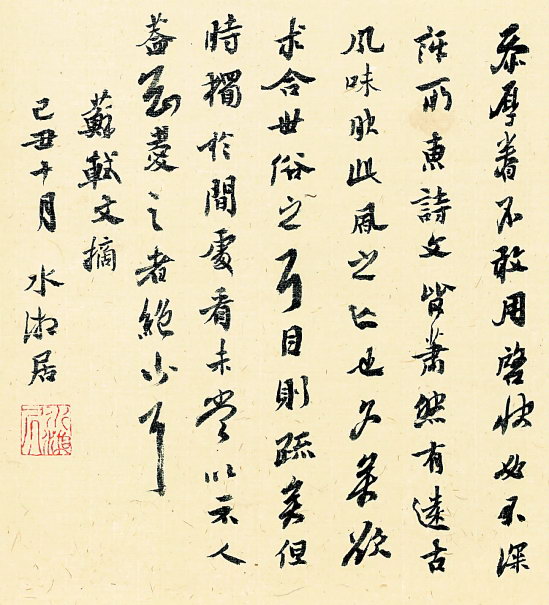 忝厚眷不敢用啓狀必不深
訝所惠詩文皆蕭然有遠古
風味然此風之亡也久矣欲
求合世俗之耳目則疏矣但
時獨於間處看未嘗以示人
蓋知愛之者絕少耳
蘇軾文摘
己丑十月 水 居